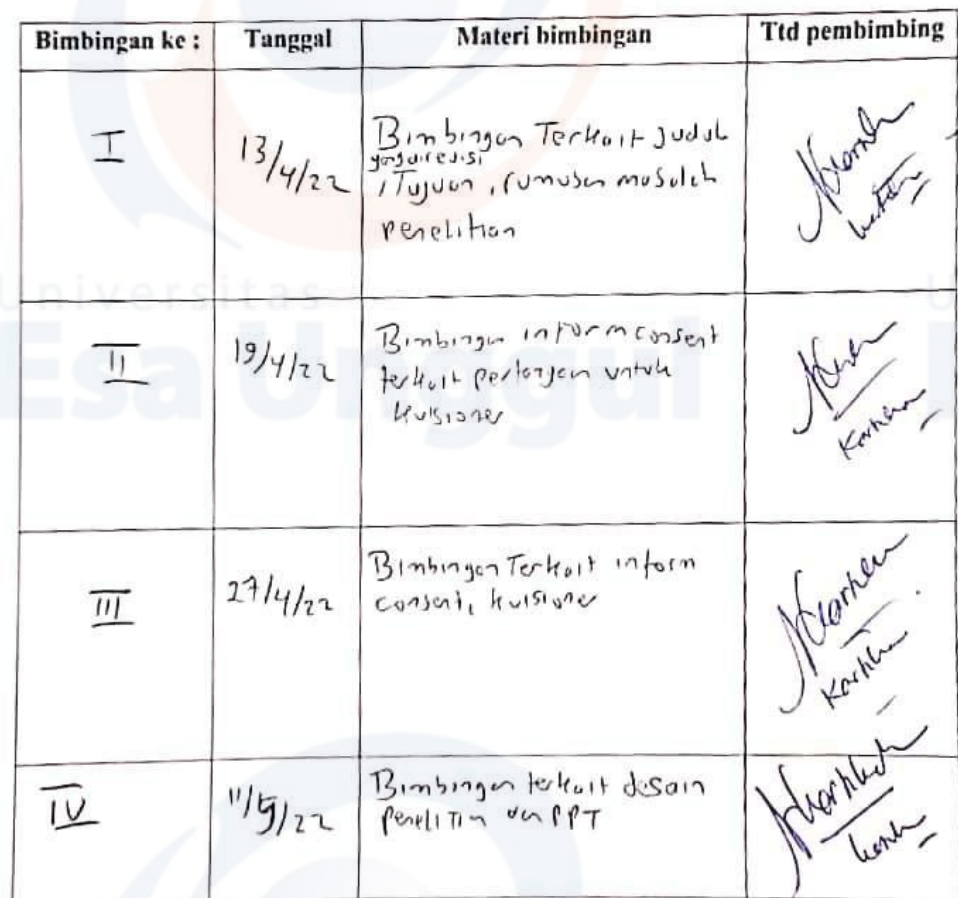 Bimbingan ke : Tanggal Materi bimbingan Ttd pembimbing
I 13/4/22 Bimbingan Terkait Judul
yang direvisi
, Tujuan , rumusan masalah
penelitian
II 19/4/22 Bimbingan inform consent
terkait pertanyaan untuk
kuisioner
Kartika
III 27/4/22 Bimbingan Terkait inform
consent, kuisioner
Kartika
IV 11/5/22 Bimbingan terkait desain
penelitian dan PPT
Universitas
Esa Unggul